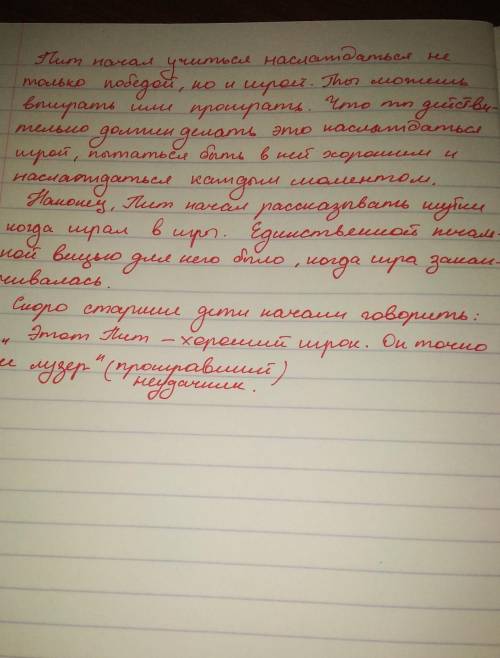 Пит начал учиться наслаждаться не
только победой, но и игрой. Ты можешь
выиграть или проиграть. Что ты действи-
тельно должен делать это наслаждаться
игрой, пытаться быть в ней хорошим и
наслаждаться каждым моментом.
Наконец, Пит начал рассказывать шутки
когда играл в игры. Единственной печаль-
ной вещью для него было, когда игра закан-
чивалась.
Скоро старшие дети начали говорить:
„Этот Пит – хороший игрок. Он точно
не лузер" (проигравший)
неудачник.